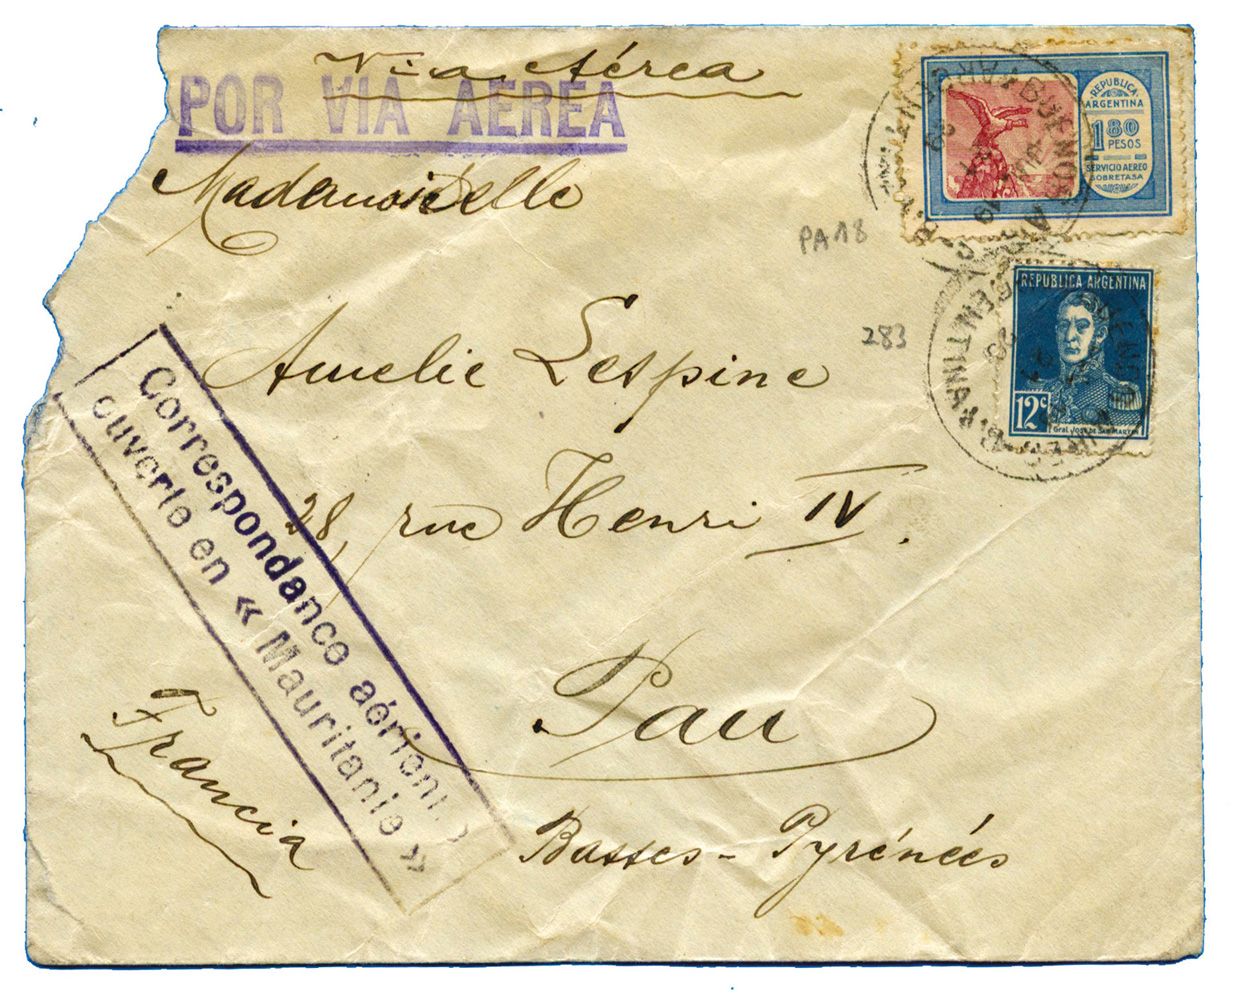 Via Aérea
POR VIA AEREA
Mademoiselle
Amelie Lespine
28, rue Henri IV.
Pau
Basses-Pyrénéés
Francia
Correspondance aérienne
ouverte en « Mauritanie »
REPUBLICA
ARGENTINA
1 80
PESOS
SERVICIO AEREO
SOBRETASA
PA 18
283
REPUBLICA ARGENTINA
12c
Gral. JOSE DE SAN MARTIN
BUENOS AIRES
ARGENTINA